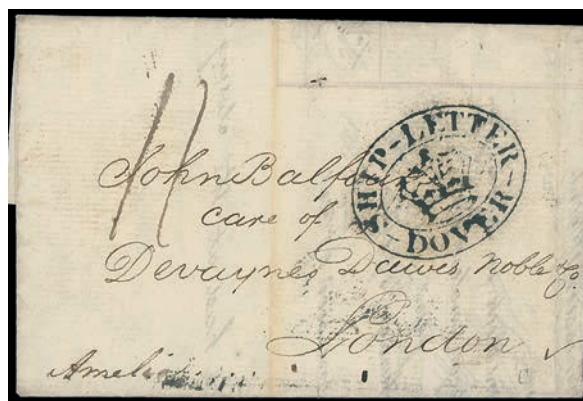 11
SHIP-LETTER-
-DOVER-
John Balfour
care of
Devaynes Dawes, Noble & Co.
London
Amelia